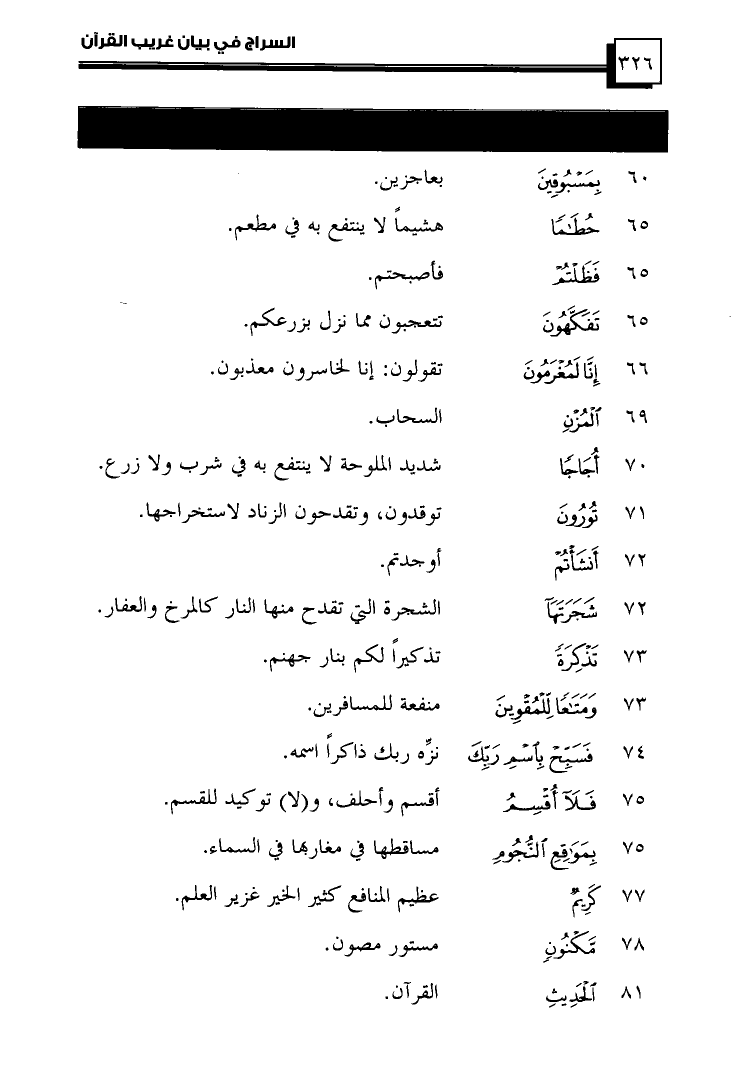 السراج في بيان غريب القرآن
٣٢٦
٦٠ بِمَسْبُوقِينَ بعاجزين.
٦٥ حُطَٰمًا هشيماً لا ينتفع به في مطعم.
٦٥ فَظَلْتُمْ فأصبحتم.
٦٥ تَفَكَّهُونَ تتعجبون مما نزل بزرعكم.
٦٦ إِنَّا لَمُغْرَمُونَ تقولون: إنا لخاسرون معذبون.
٦٩ ٱلْمُزْنِ السحاب.
٧٠ أُجَاجًا شديد الملوحة لا ينتفع به في شرب ولا زرع.
٧١ تُورُونَ توقدون، وتقدحون الزناد لاستخراجها.
٧٢ أَنشَأْتُمْ أوجدتم.
٧٢ شَجَرَتَهَآ الشجرة التي تقدح منها النار كالمرخ والعفار.
٧٣ تَذْكِرَةً تذكيراً لكم بنار جهنم.
٧٣ وَمَتَٰعًا لِّلْمُقْوِينَ منفعة للمسافرين.
٧٤ فَسَبِّحْ بِٱسْمِ رَبِّكَ نزِّه ربك ذاكراً اسمه.
٧٥ فَلَآ أُقْسِمُ أقسم وأحلف، و(لا) توكيد للقسم.
٧٥ بِمَوَٰقِعِ ٱلنُّجُومِ مساقطها في مغاربها في السماء.
٧٧ كَرِيمٌ عظيم المنافع كثير الخير غزير العلم.
٧٨ مَّكْنُونٍ مستور مصون.
٨١ ٱلْحَدِيثِ القرآن.